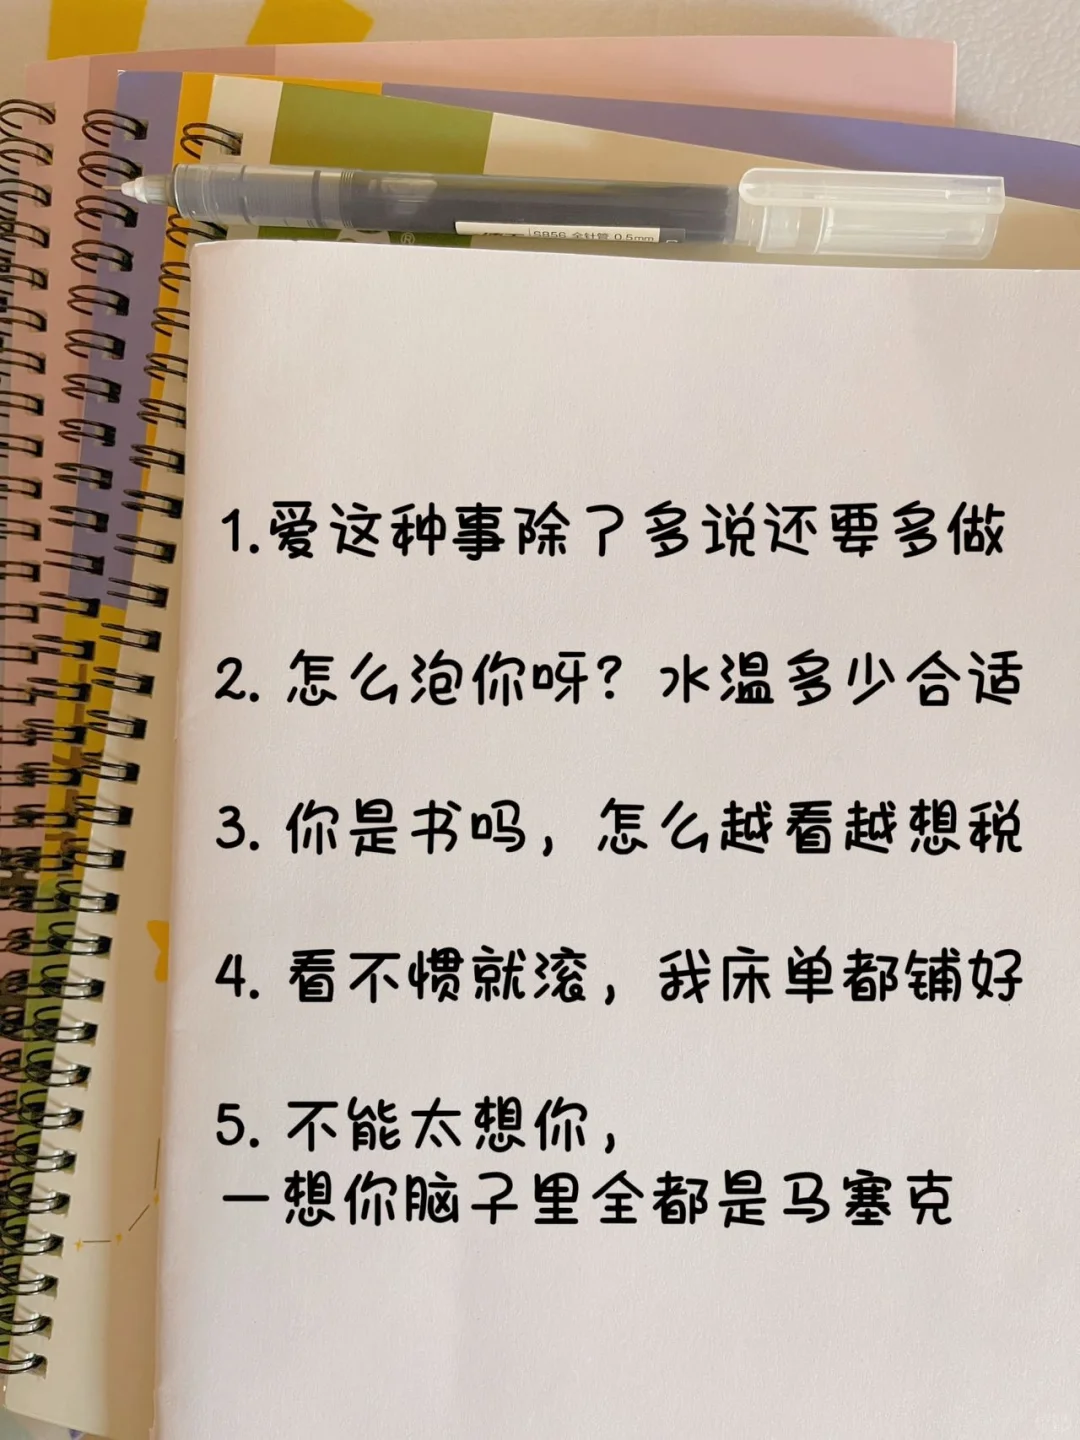 ®
S856 全针管 0.5mm
1.爱这种事除了多说还要多做
2. 怎么泡你呀？水温多少合适
3. 你是书吗，怎么越看越想税
4. 看不惯就滚，我床单都铺好
5. 不能太想你，
一想你脑子里全都是马塞克